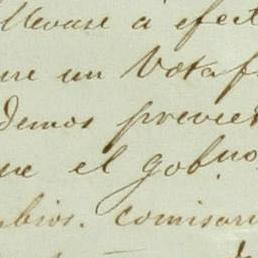 llevase á efect
un Vota
demos previe
ue el gobno.
bios. Comisari